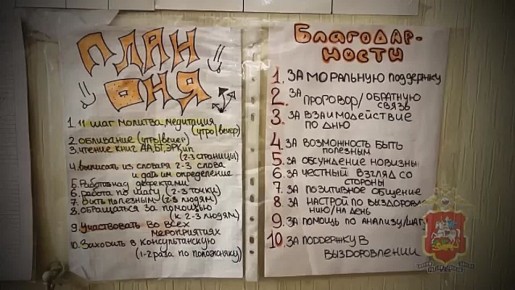 ПЛАН
ДНЯ
1. 11 шаг молитва, медитация
(утро/вечер)
2. обливание (утро/вечер)
3. чтение книг АА, БГ, ЭРК и п
(2-3 страницы)
4. выписать из словаря 2-3 слова
и дать им определение
5. Работа над дефектами
6. работа по шагу (2-3 точки)
7. Быть полезным (2-3 людям)
8. обращаться за помощью
(к 2-3 людям)
9. Участвовать во всех
мероприятиях
10. Заходить в консультантскую
(1-2 раза по положняку)
БЛАГОДАР-
НОСТИ
1. ЗА МОРАЛЬНУЮ ПОДДЕРЖКУ
2. ЗА ПРОГОВОР/ОБРАТНУЮ
СВЯЗЬ
3. ЗА ВЗАИМОДЕЙСТВИЕ
ПО ДНЮ
4. ЗА ВОЗМОЖНОСТЬ БЫТЬ
ПОЛЕЗНЫМ
5. ЗА ОБСУЖДЕНИЕ НОВИЗНЫ
6. ЗА ЧЕСТНЫЙ ВЗГЛЯД СО
СТОРОНЫ
7. ЗА ПОЗИТИВНОЕ ОБЩЕНИЕ
8. ЗА НАСТРОЙ ПО ВЫЗДОРОВЛЕ
НИЮ/НА ДЕНЬ
9. ЗА ПОМОЩЬ ПО АНАЛИЗУ/ШАГУ
10. ЗА ПОДДЕРЖКУ В
ВЫЗДОРОВЛЕНИИ